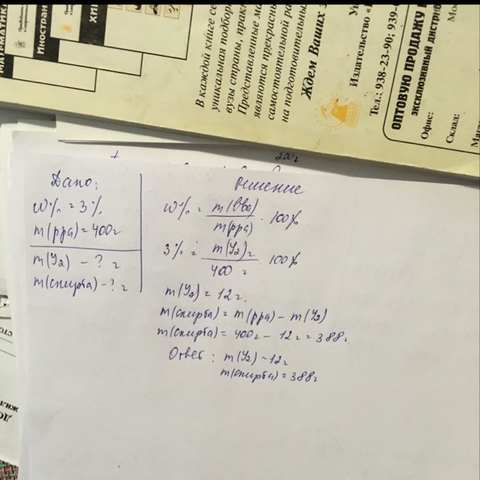 МАТЕМАТИКА
Иностран
ХИМ
В каждой книге се
уникальная подбор
вузы страны, прак
Представленные ма
являются прекрасны
самостоятельной ра
на подготовительны
Ждем Ваших з
Издательство «
Тел.: 938-23-90; 939-
ОПТОВУЮ ПРОДАЖУ
ЭКСКЛЮЗИВНЫЙ ДИСТРИБ
Офис:
Склад:
Мага
200г
Дано:
w% = 3%
m(рра) = 400г
m(I2) - ? г
m(спирта) - ? г
Решение
w% = m(вва) / m(рра) · 100%
3% = m(I2)г / 400 г · 100%
m(I2) = 12 г.
m(спирта) = m(рра) - m(I2)
m(спирта) = 400г - 12г = 388г
Ответ: m(I2) - 12г
m(спирта) = 388г